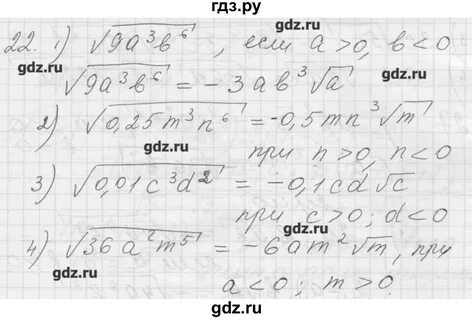 гдз.ру
22. 1) √9a³b⁶ , если a>0, b<0
gdz.ru gdz.ru
√9a³b⁶ = -3ab³√a
gdz.ru
2) √0,25m³n⁶ = -0,5mn³√m
gdz.ru
при n>0, n<0
3) √0,01c³d² = -0,1cd√c
gdz.ru gdz.ru
при c>0; d<0
4) √36a²m⁵ = -6am²√m, при
gdz.ru gdz.ru
a<0; m>0.
гдз.ру